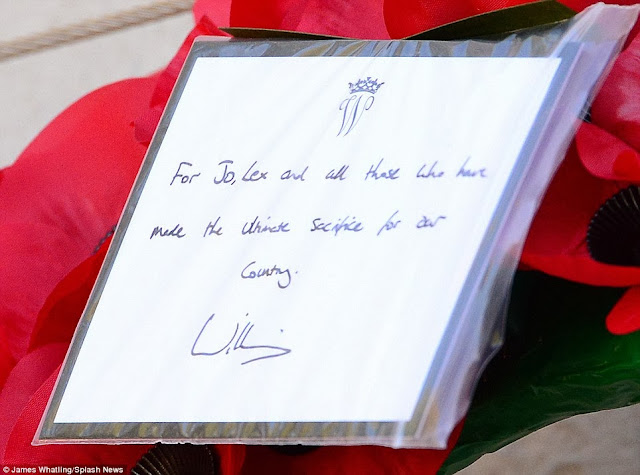 W
For Jo, Lex and all those who have
made the ultimate sacrifice for our
Country.
William
© James Whatling/Splash News